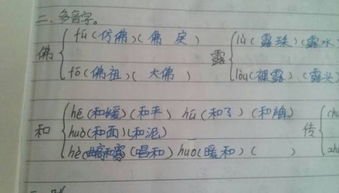 二、多音字。
佛 fú(仿佛)( 佛 戾) 露 lù( 露珠)(露水
fó(佛祖)( 大佛) lòu( 露)(露
和 hé(和暖)(和平) hú(和了)(和牌)
huó(和面)(和泥) 传
hè( )(唱和) huo(暖和)( )